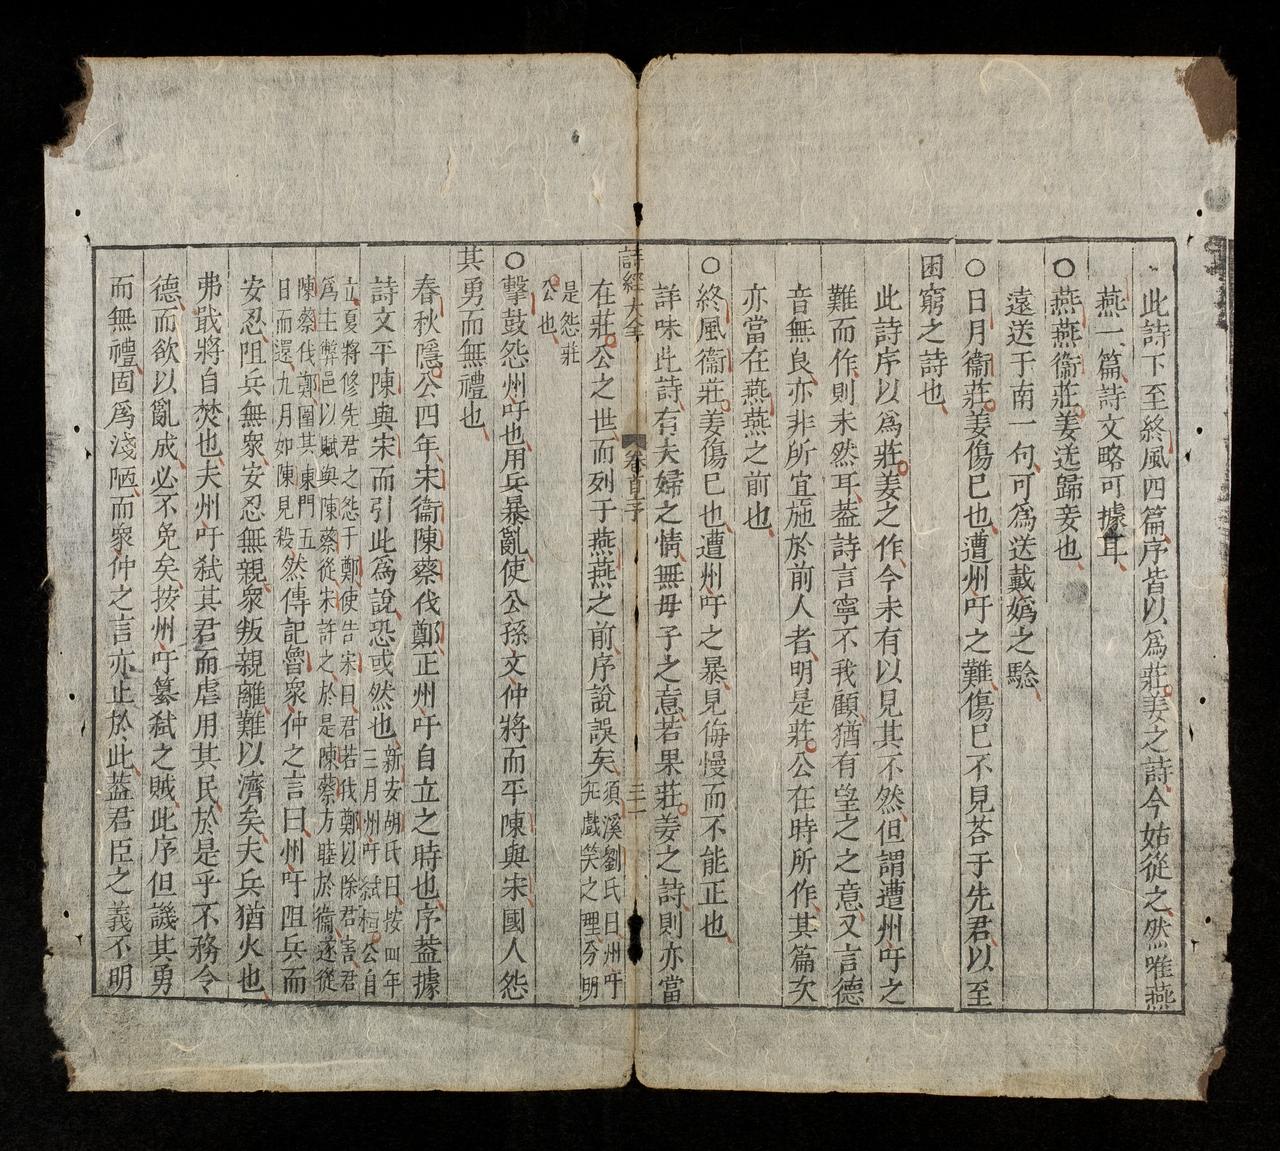 此詩下至終風四篇序皆以爲莊姜之詩今姑從之然唯燕
燕一篇詩文略可據耳
○燕燕衞莊姜送歸妾也
遠送于南一句可爲送戴嬀之驗
○日月衞莊姜傷已也遭州吁之難傷已不見荅于先君以至
困窮之詩也
此詩序以爲莊姜之作今未有以見其不然但謂遭州吁之
難而作則未然耳葢詩言寧不我顧猶有望之之意又言德
音無良亦非所宜施於前人者明是莊公在時所作其篇次
亦當在燕燕之前也
○終風衞莊姜傷已也遭州吁之暴見侮慢而不能正也
詳味此詩有夫婦之情無母子之意若果莊姜之詩則亦當
詩經大全 卷首序 三十一
在莊公之世而列于燕燕之前序說誤矣
須溪劉氏曰州吁
無戲笑之理分明
是怨莊
公也
○擊鼓怨州吁也用兵暴亂使公孫文仲將而平陳與宋國人怨
其勇而無禮也
春秋隱公四年宋衞陳蔡伐鄭正州吁自立之時也序葢據
詩文平陳與宋而引此爲說恐或然也
新安胡氏曰按四年
三月州吁弑桓公自
立夏將修先君之怨于鄭使告宋曰君若伐鄭以除君害君
爲主弊邑以賦與陳蔡從宋許之於是陳蔡方睦於衞遂從
陳蔡伐鄭圍其東門五
日而還九月如陳見殺
然傳記魯衆仲之言曰州吁阻兵而
安忍阻兵無衆安忍無親衆叛親離難以濟矣夫兵猶火也
弗戢將自焚也夫州吁弑其君而虐用其民於是乎不務令
德而欲以亂成必不免矣按州吁簒弑之賊此序但譏其勇
而無禮固爲淺陋而衆仲之言亦止於此葢君臣之義不明